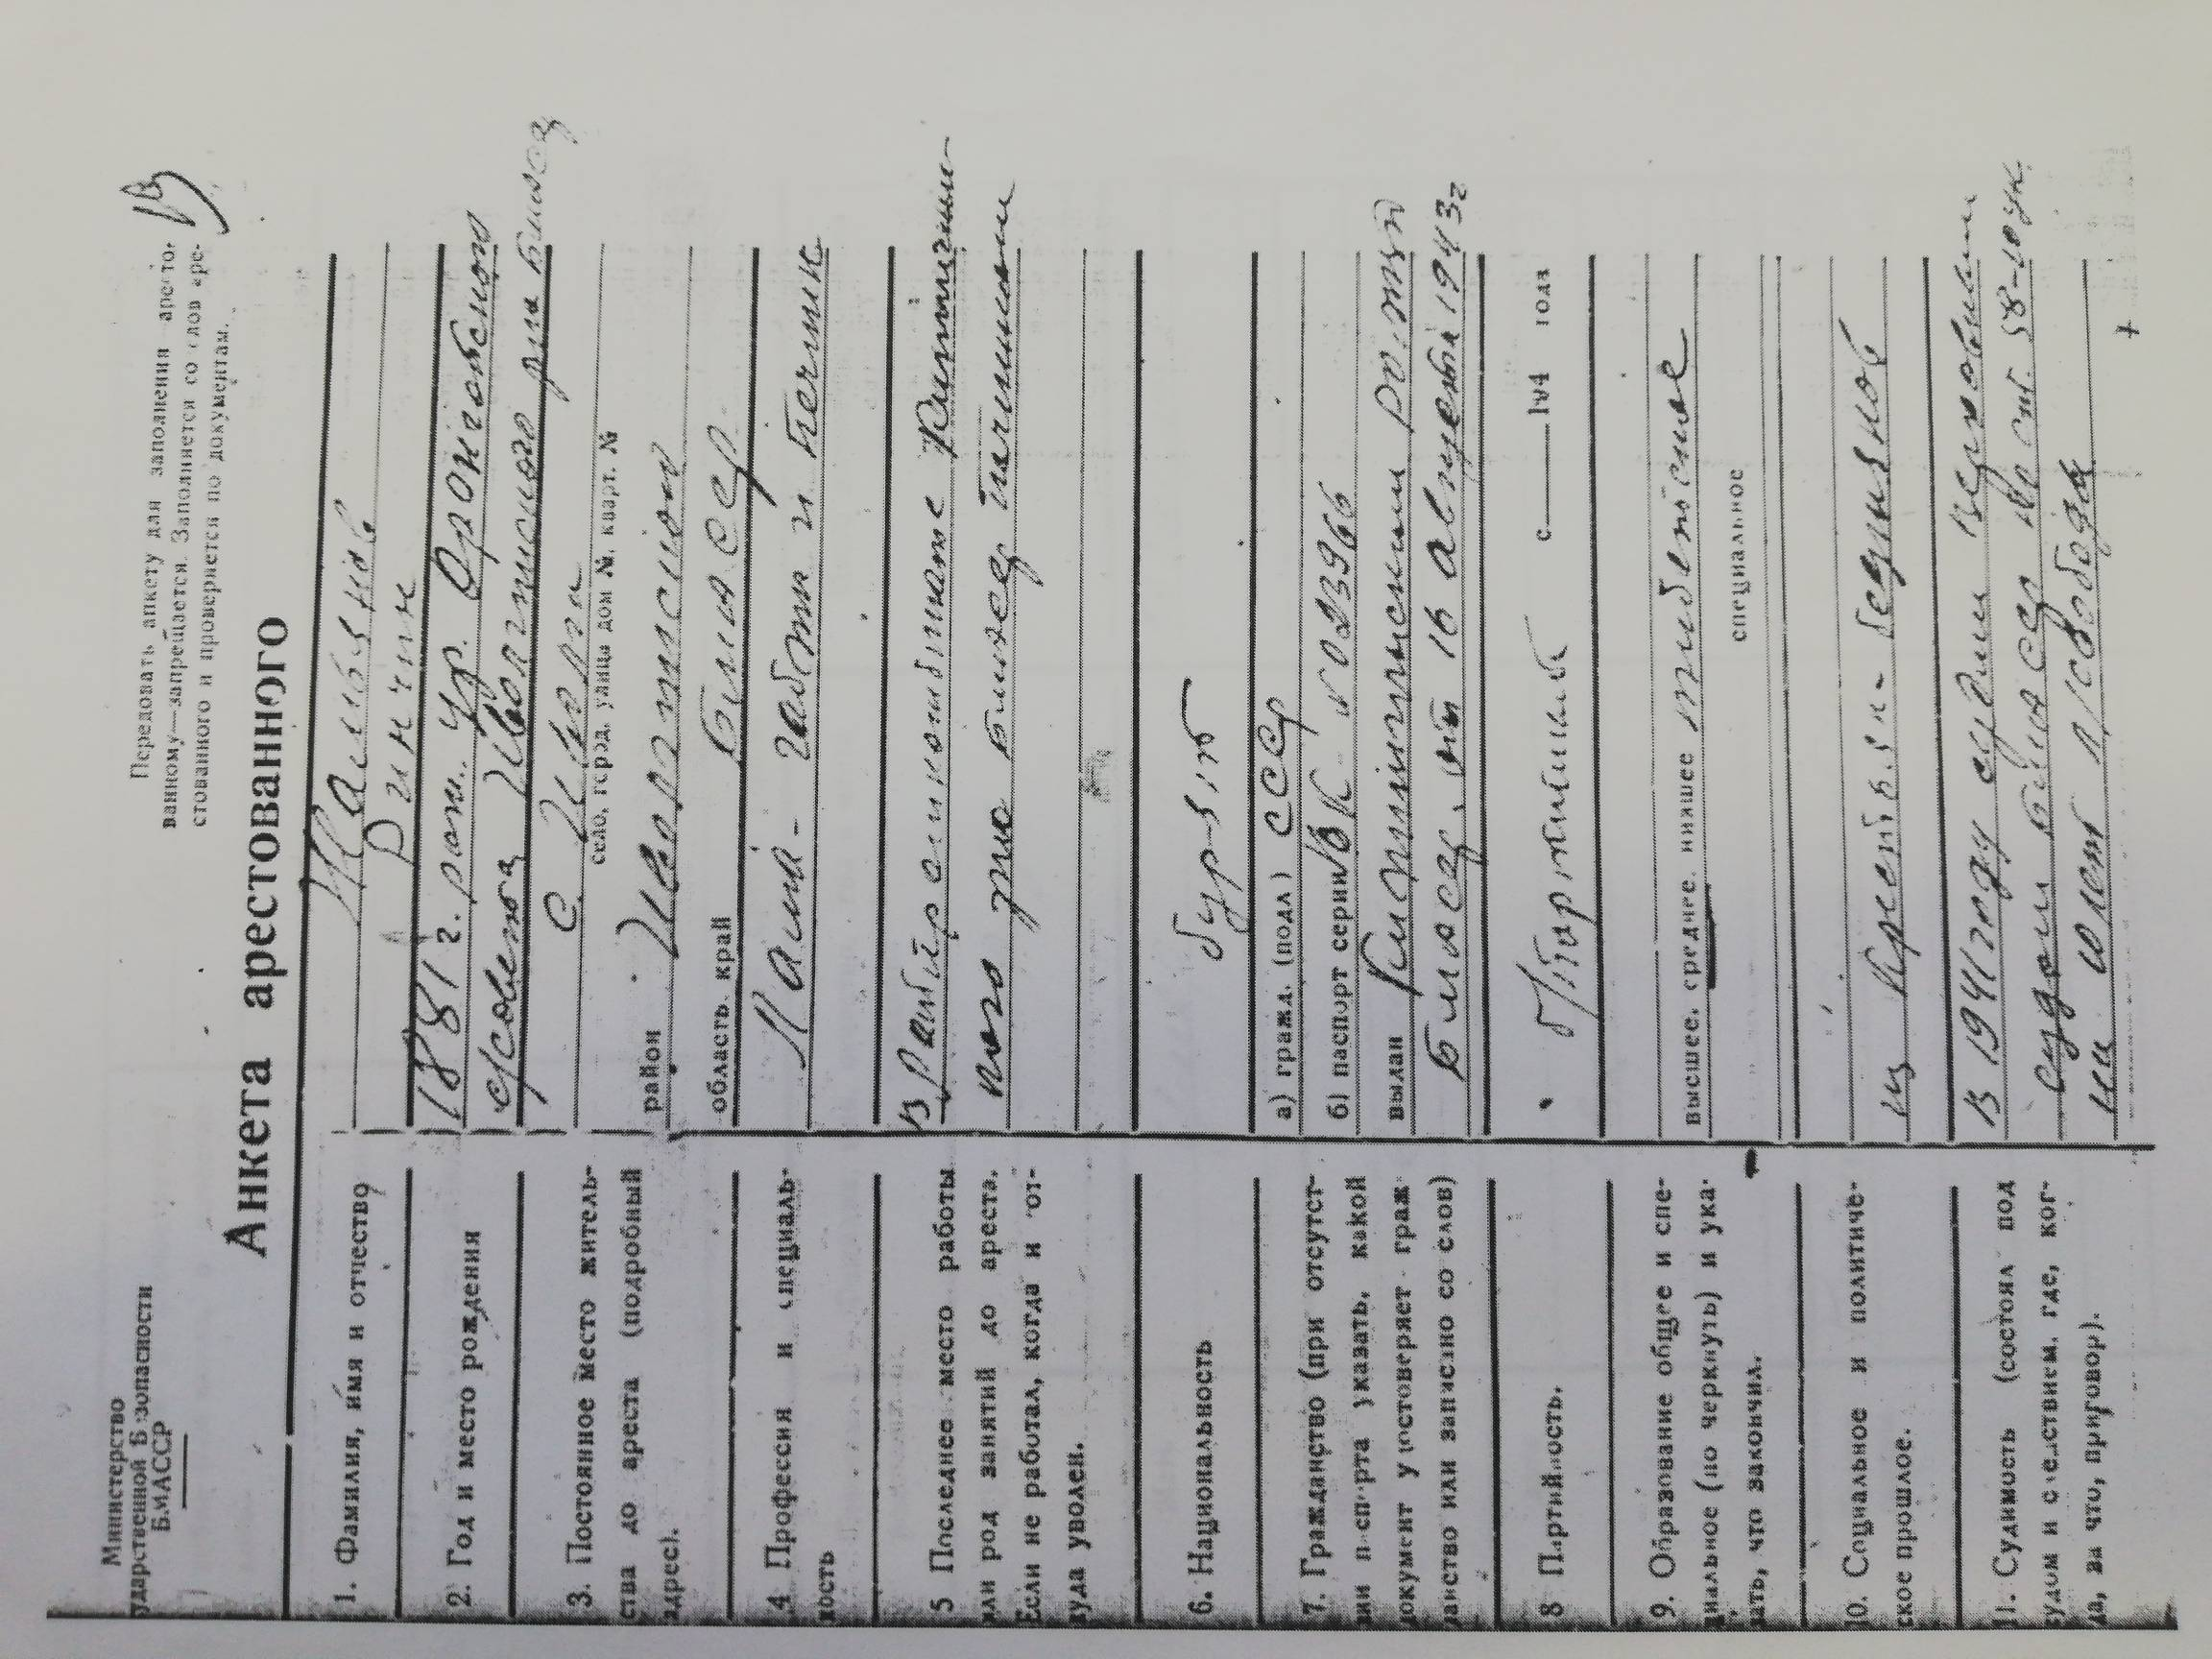 Министерство
ударственной Безопасности
БМАССР
Передовать анкету для заполнения аресто-
ванному—запрещается. Заполняется со слов аре-
стованного и проверяется по документам.
Анкета арестованного
1. Фамилия, имя и отчество
Ринчин
2. Год и место рождения
1881 г. рожд. ур.
с/совета Иволгинского р-на БМАССР
3. Постоянное место житель-
ства до ареста (подробный
адрес).
с.
село, город, улица дом №, кварт. №
район Иволгинский
область, край БМАССР
4 Профессия и специаль-
ность
Лама - габжи и
5 Последнее место работы
или род занятий до ареста.
Если не работал, когда и от-
куда уволен.
В
ского р-на БМАССР
6. Национальность
бурят
7. Гражданство (при отсутст-
вии паспорта указать, какой
документ удостоверяет граж-
данство или записано со слов)
а) гражд. (подл) СССР
б) паспорт серии
выдан
БМАССР, от 16 1943 г
8 Партийность.
б/партийный с 194 года
9. Образование общее и спе-
циальное (по черкнуть) и ука-
зать, что закончил.
высшее, среднее, низшее тибетское
специальное
10. Социальное и политиче-
ское прошлое.
из крестьян - бедняков
11. Судимость (состоял под
судом и следствием, где, ког-
да, за что, приговор).
В 1941 году судим Верховным
судом БМАССР по ст. 58-10 УК
на 10 лет л/свободы